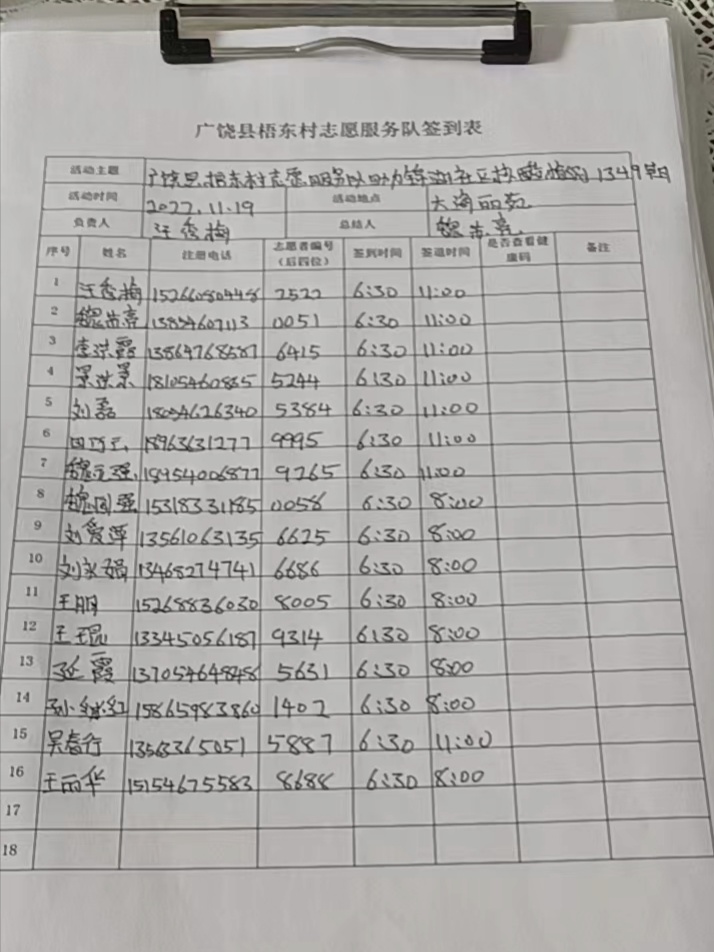 广饶县梧东村志愿服务队签到表
活动主题 广饶县梧东村志愿服务队助力锦湖社区核酸检测1349期
活动时间 2022.11.19 活动地点 大海丽苑
负责人 汪秀梅 总结人
序号 姓名 注册电话 志愿者编号（后四位） 签到时间 签退时间 是否查看健康码 备注
1 汪秀梅 15266080448 2522 6:30 11:00
2 0051 6:30 11:00
3 李洪霞 13864768587 6415 6:30 11:00
4 18105460865 5244 6:30 11:00
5 刘磊 18054626340 5384 6:30 11:00
6 田巧云 18963631277 9995 6:30 11:00
7 18954006877 9265 6:30 11:00
8 魏国强 15318331185 0058 6:30 8:00
9 刘爱萍 13561063135 6625 6:30 8:00
10 刘永娟 13468274741 6686 6:30 8:00
11 王朋 15268836030 8005 6:30 8:00
12 王琨 13345056187 9314 6:30 8:00
13 延霞 13705464848 5631 6:30 8:00
14 15865983860 1402 6:30 8:00
15 吴春行 13563365051 5887 6:30 11:00
16 王丽华 15154675583 8688 6:30 8:00
17
18